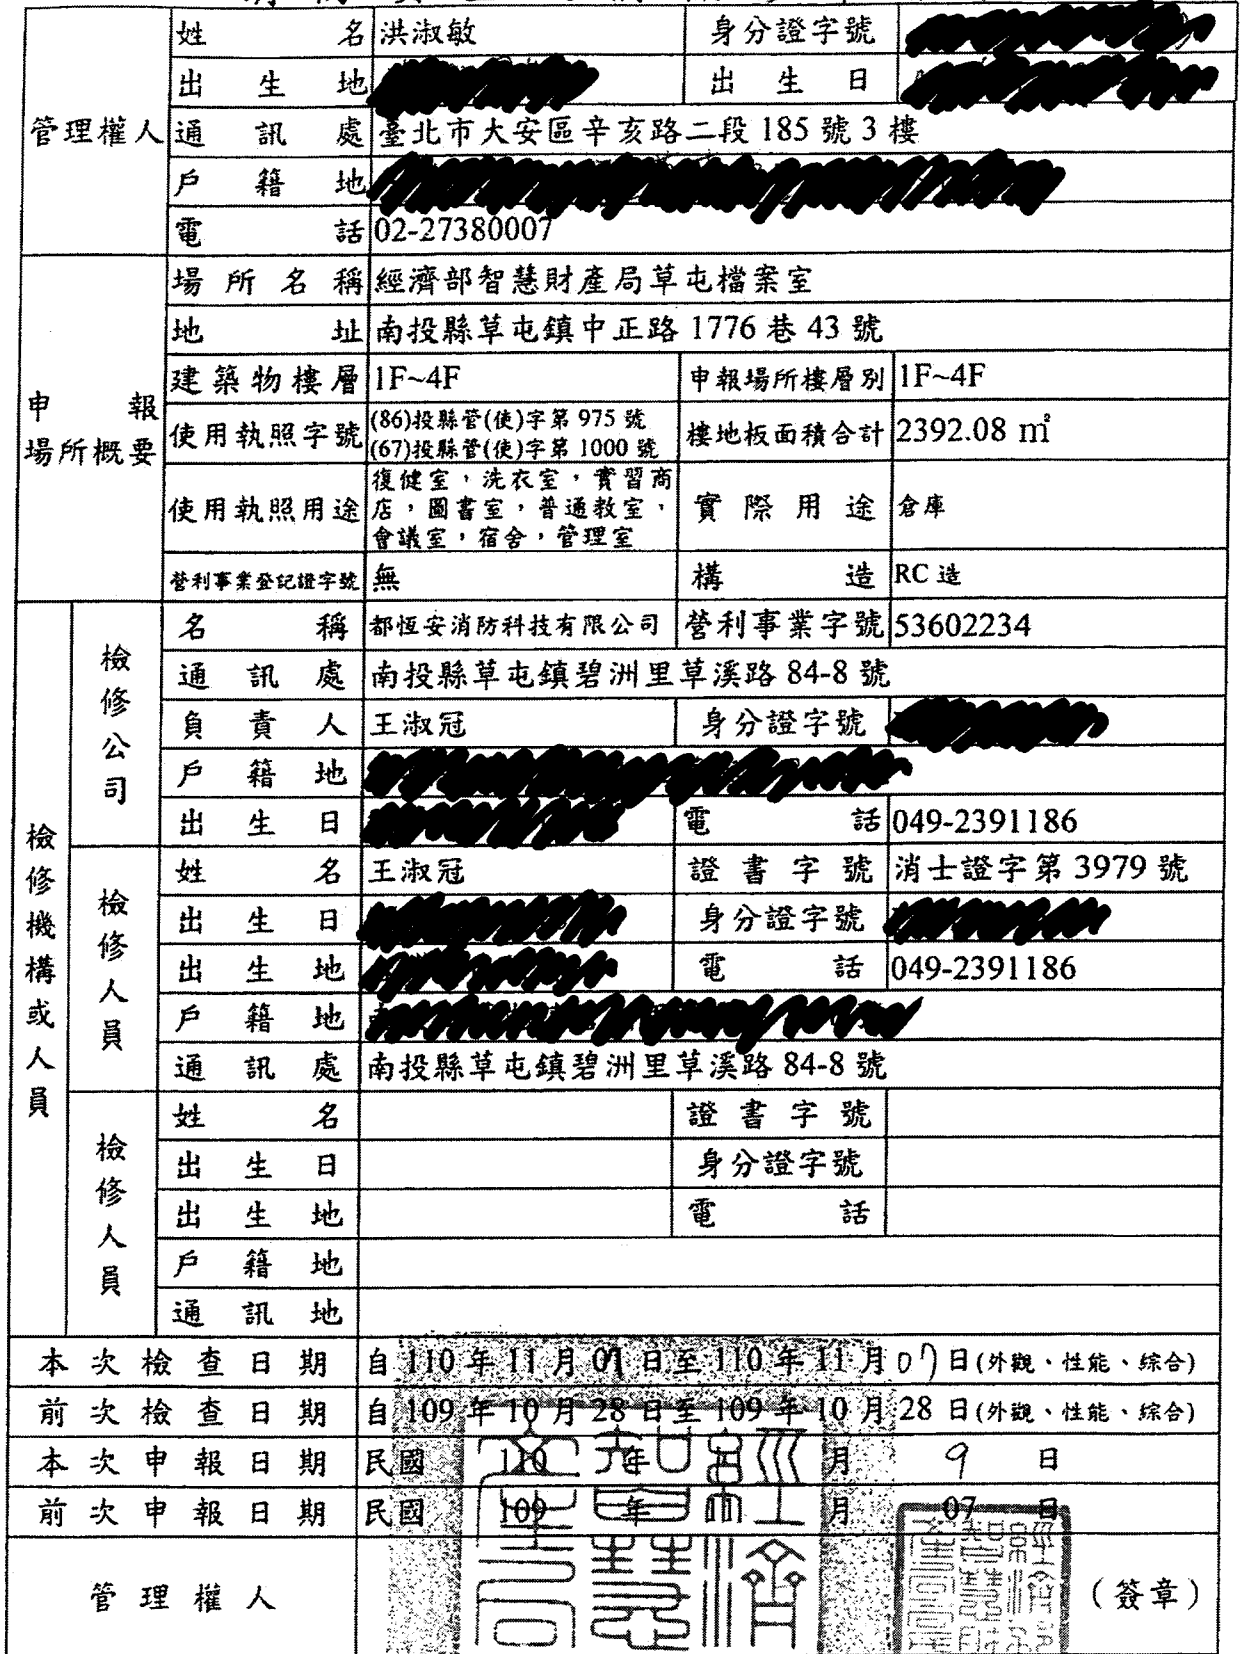 姓名 洪淑敏 身分證字號
出生地 出生日
管理權人 通訊處 臺北市大安區辛亥路二段 185 號 3 樓
戶籍地
電話 02-27380007
場所名稱 經濟部智慧財產局草屯檔案室
地址 南投縣草屯鎮中正路 1776 巷 43 號
建築物樓層 1F~4F 申報場所樓層別 1F~4F
申報場所概要 使用執照字號 (86)投縣管(使)字第 975 號
(67)投縣管(使)字第 1000 號
樓地板面積合計 2392.08 ㎡
使用執照用途 復健室,洗衣室,實習商
店,圖書室,普通教室,
會議室,宿舍,管理室
實際用途 倉庫
營利事業登記證字號 無 構造 RC 造
檢修機構或人員
檢修公司
名稱 都恆安消防科技有限公司 營利事業字號 53602234
通訊處 南投縣草屯鎮碧洲里草溪路 84-8 號
負責人 王淑冠 身分證字號
戶籍地
出生日 電話 049-2391186
檢修人員
姓名 王淑冠 證書字號 消士證字第 3979 號
出生日 身分證字號
出生地 電話 049-2391186
戶籍地
通訊處 南投縣草屯鎮碧洲里草溪路 84-8 號
檢修人員
姓名 證書字號
出生日 身分證字號
出生地 電話
戶籍地
通訊地
本次檢查日期 自 110 年 11 月 07 日至 110 年 11 月 07 日(外觀、性能、綜合)
前次檢查日期 自 109 年 10 月 28 日至 109 年 10 月 28 日(外觀、性能、綜合)
本次申報日期 民國 110 年 月 9 日
前次申報日期 民國 109 年 月 07 日
管理權人 (簽章)